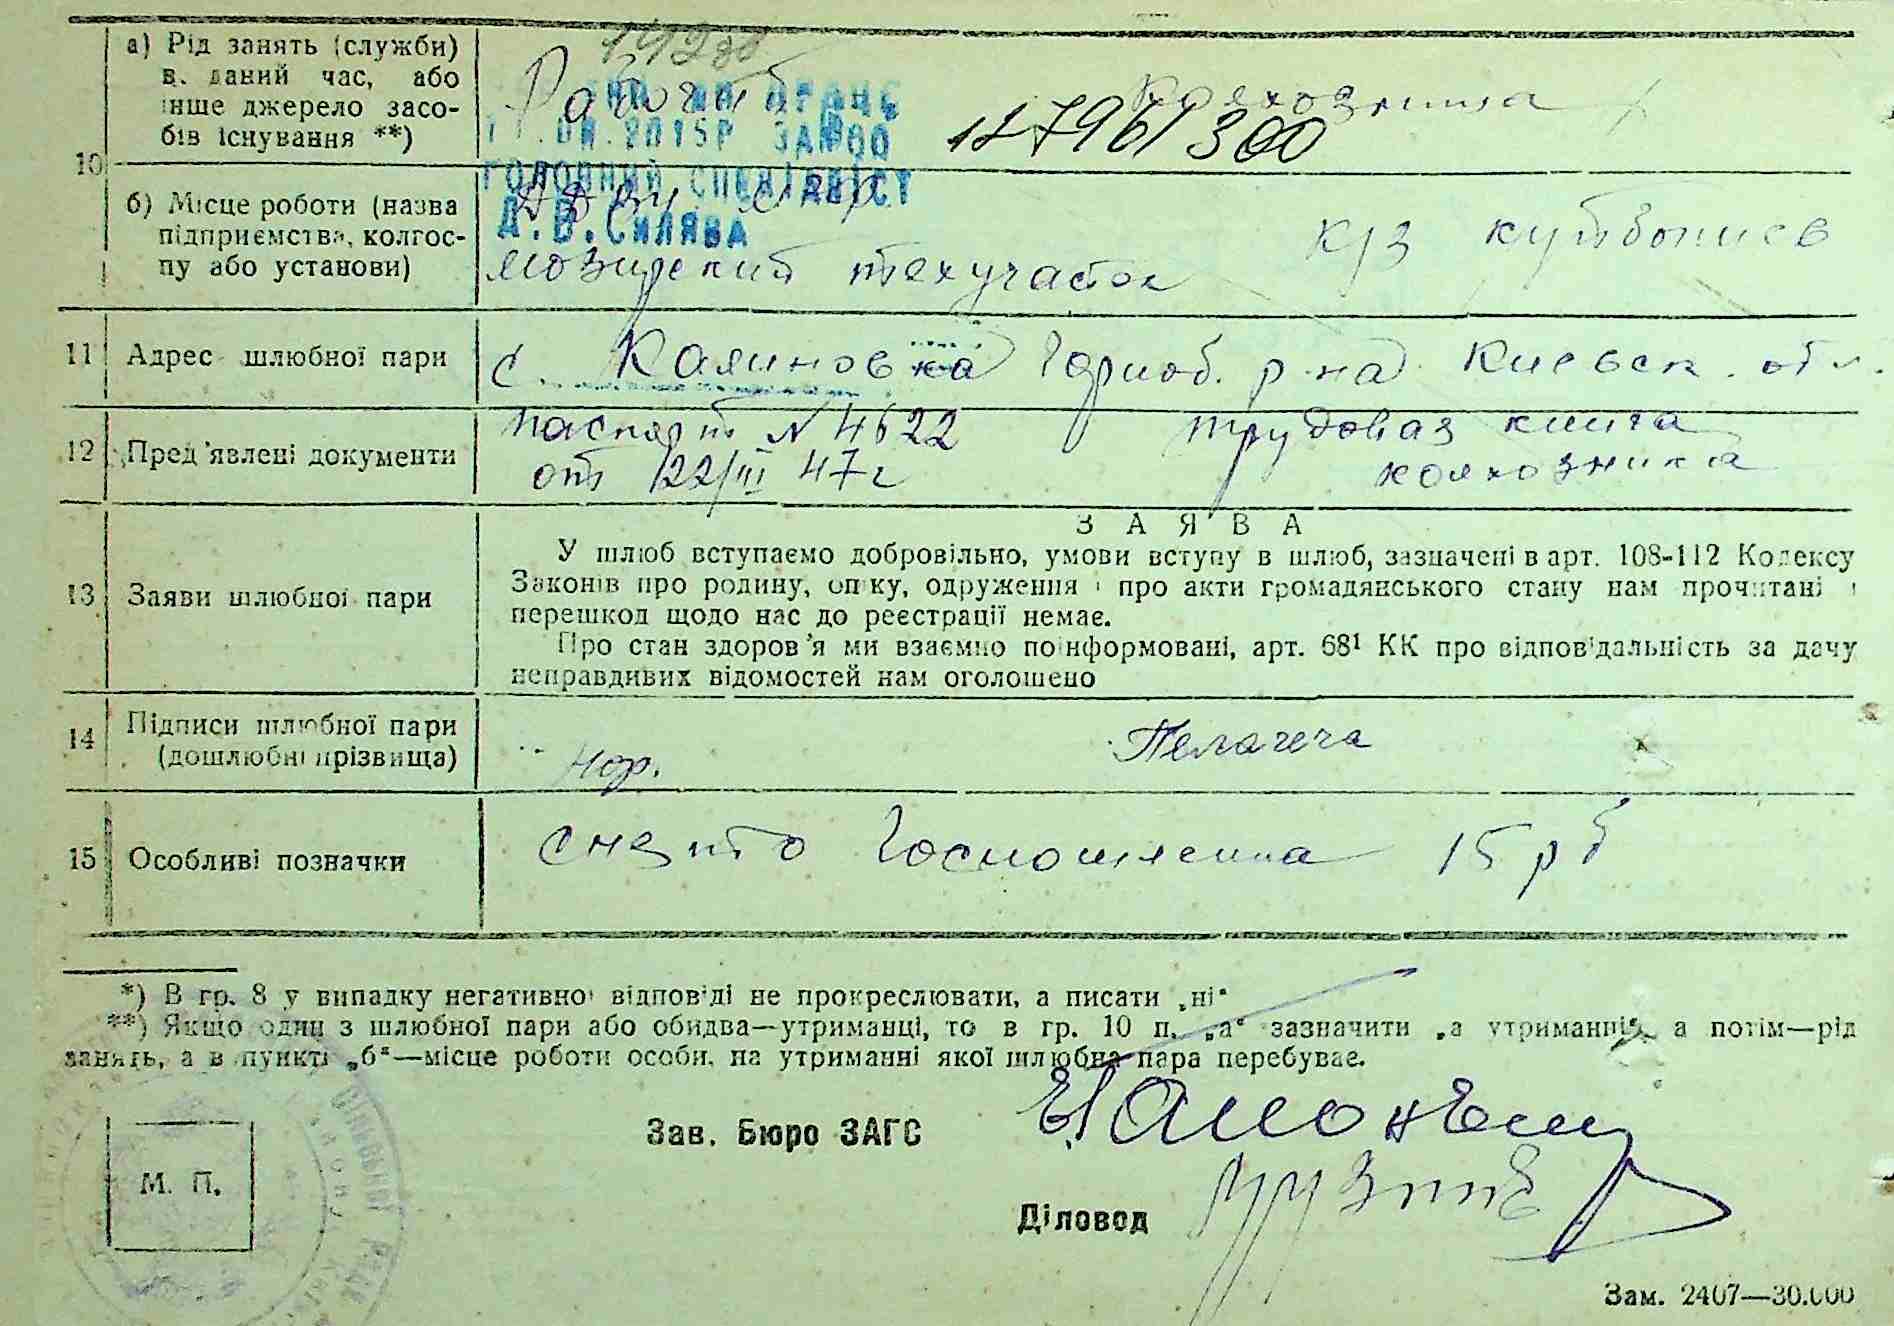 а) Рід занять (служби)
в даний час, або
інше джерело засо-
бів існування **)
Рабочий
колхозница
2015Р
ГОЛОВНИЙ СПЕЦІАЛІСТ
Д.В.СИЛЯВА
10
б) Місце роботи (назва
підприємства, колгос-
пу або установи)
мозирский техучасток
к/з
11 Адрес шлюбної пари
с. Калиновка р-на Киевск. обл.
12 Пред'явлені документи
паспорт № 4622
от 22/III 47 г
трудовая книга
колхозника
ЗАЯВА
13 Заяви шлюбної пари
У шлюб вступаємо добровільно, умови вступу в шлюб, зазначені в арт. 108-112 Кодексу
Законів про родину, опіку, одруження і про акти громадянського стану нам прочитані і
перешкод щодо нас до реєстрації немає.
Про стан здоров'я ми взаємно поінформовані, арт. 68¹ КК про відповідальність за дачу
неправдивих відомостей нам оголошено
14 Підписи шлюбної пари
(дошлюбні прізвища)
15 Особливі позначки
снято Госпошлина 15 рб
*) В гр. 8 у випадку негативної відповіді не прокреслювати, а писати „ні“
**) Якщо один з шлюбної пари або обидва—утриманці, то в гр. 10 п. „а“ зазначити „а утриманні“, а потім—рід
занять, а в пункті „б“—місце роботи особи, на утриманні якої шлюбна пара перебуває.
М. П.
Зав. Бюро ЗАГС
Діловод
Зам. 2407—30.000